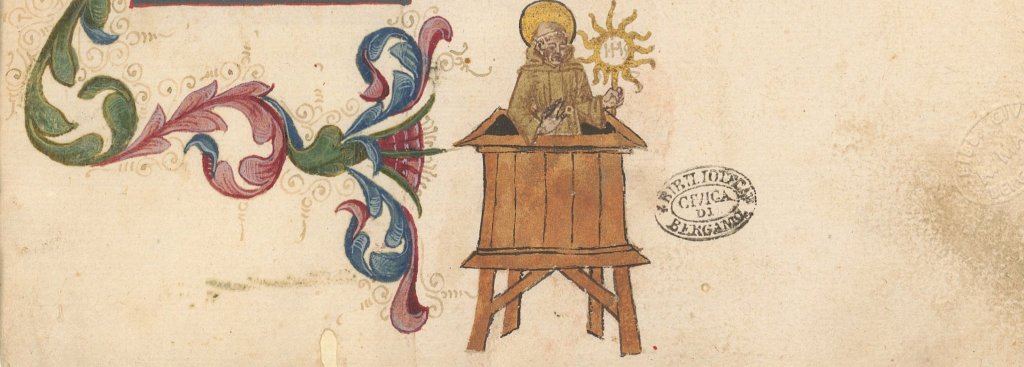 IHS
BIBLIOTECA
CIVICA
DI
BERGAMO